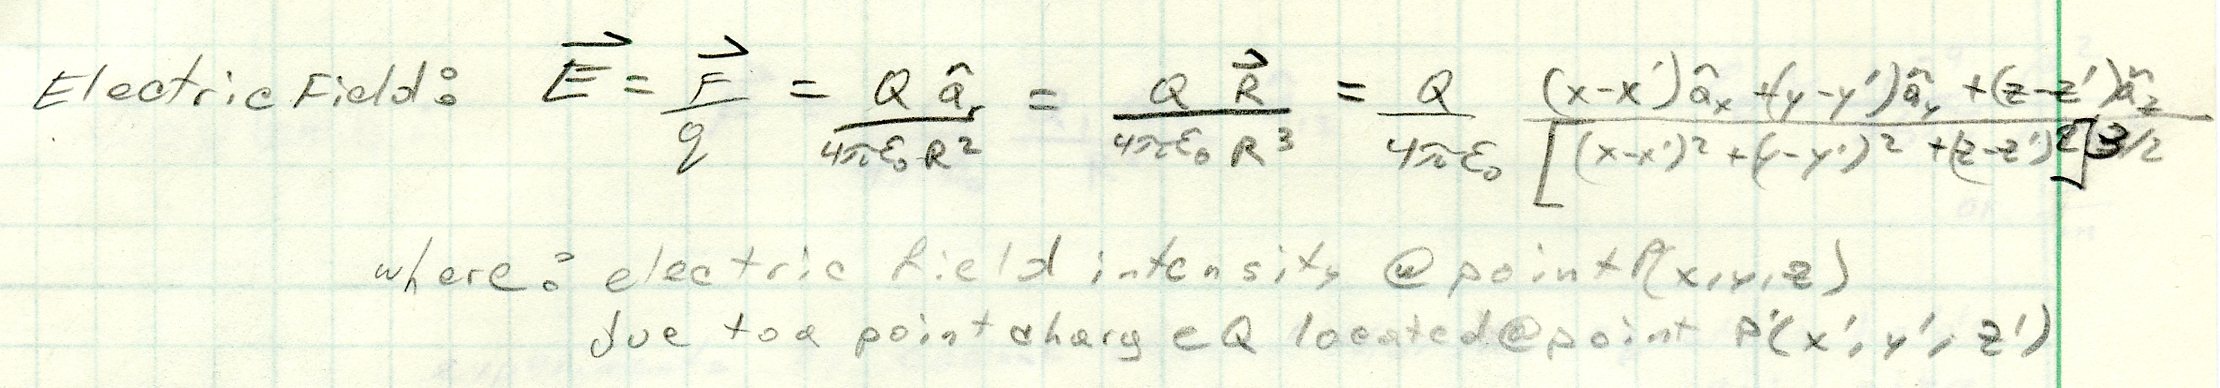 Electric Field: E⃗ = F⃗/q = Q â_r / 4πε₀R² = Q R⃗ / 4πε₀R³ = Q/4πε₀ (x-x')â_x + (y-y')â_y + (z-z')â_z / [(x-x')² + (y-y')² + (z-z')²]^3/2
where: electric field intensity @ point P(x,y,z)
due to a point charge Q located @ point P'(x', y', z')